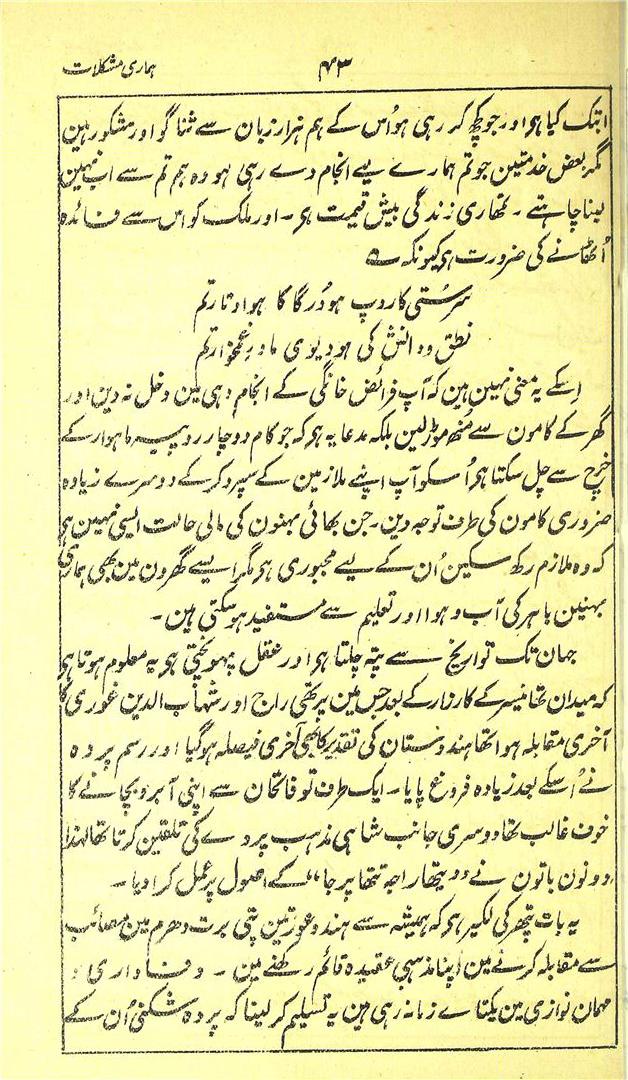 ہماری مشکلات
۴۳
ابتک کیا ہو اور جو کچھ کر رہی ہو اُس کے ہم ہزار زبان سے ثنا گو اور مشکور ہین
مگر بعض خدمتین جو تم ہمارے لیے انجام دے رہی ہو وہ ہم تم سے اب نہین
لینا چاہتے ۔ تمھاری زندگی بیش قیمت ہی ۔ اور ملک کو اس سے فائدہ
اُٹھانے کی ضرورت ہی کیونکہ ؎
سرستی کا روپ ہو دُرگا کا ہو اوتار تم
نطق و دانش کی ہو دیوی مادر غمخوار تم
اِسکے یہ معنی نہین ہین کہ آپ فرائض خانگی کے انجام دہی مین دخل نہ دین اور
گھر کے کامون سے مُنھ موڑ لین بلکہ مدعا یہ ہی کہ جو کام دو چار روپیہ ماہوار کے
خرچ سے چل سکتا ہی اُسکو آپ اپنے ملازمین کے سپرد کر کے دوسرے زیادہ
ضروری کامون کی طرف توجہ دین ۔ جن بھائی بہنون کی مالی حالت ایسی نہین ہی
کہ وہ ملازم رکھ سکین اُن کے لیے مجبوری ہی مگر ایسے گھرون مین بھی ہماری
بہنین باہر کی آب و ہوا اور تعلیم سے مستفید ہو سکتی ہین ۔
جہان تک تواریخ سے پتہ چلتا ہی اور عقل پہونچتی ہی یہ معلوم ہوتا ہی
کہ میدان تھانیسر کے کارزار کے بعد جس مین پرتھی راج اور شہاب الدین غوری کا
آخری مقابلہ ہوا تھا ہندوستان کی تقدیر کا بھی آخری فیصلہ ہو گیا اور رسم پردہ
نے اُسکے بعد زیادہ فروغ پایا ۔ ایک طرف تو فاتحان سے اپنی آبرو بچانے کا
خوف غالب تھا دوسری جانب شاہی مذہب پردے کی تلقین کرتا تھا لہٰذا
دونون باتون نے ”یتھا راجہ تتھا پرجا“ کے اصول پر عمل کرا دیا ۔
یہ بات پتھر کی لکیر ہی کہ ہمیشہ سے ہندو عورتین پتی برت دھرم مین مصائب
سے مقابلہ کرنے مین اپنا مذہبی عقیدہ قائم رکھنے مین ۔ وفاداری و
مہمان نوازی مین یکتاے زمانہ رہی ہین یہ تسلیم کر لینا کہ پردہ شکنی اُن کے